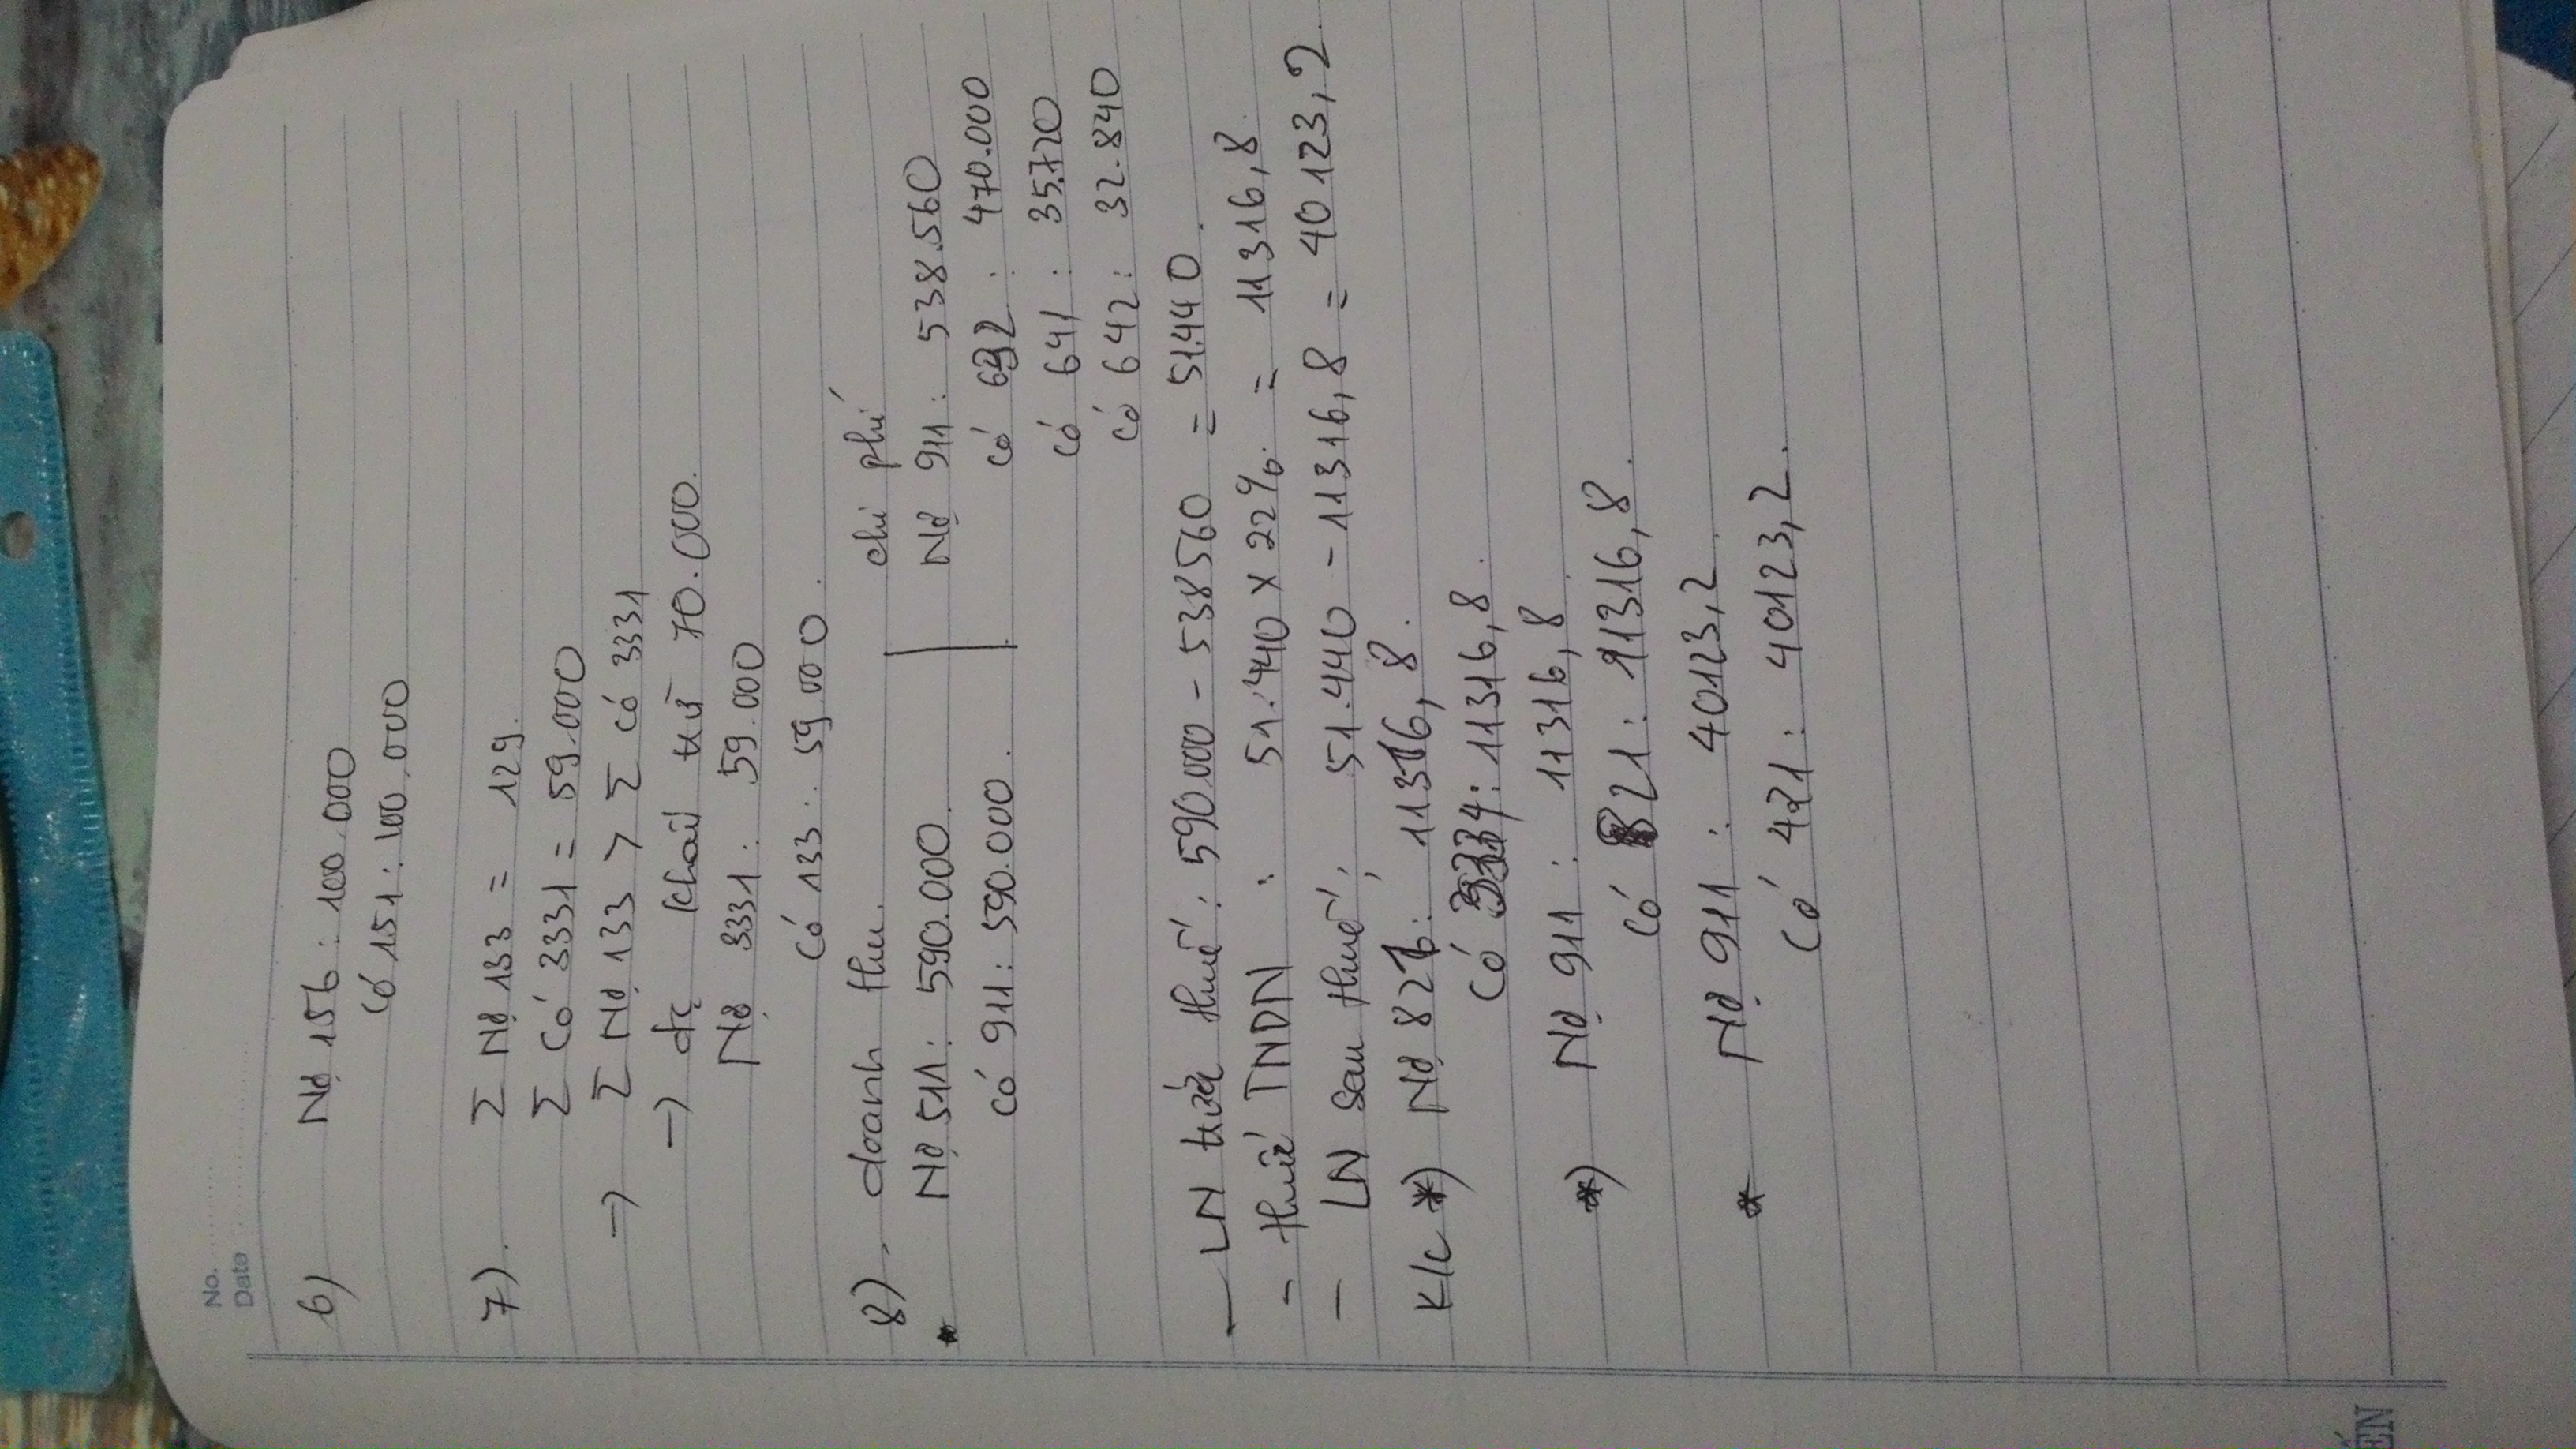 No.
Date
6) Nợ 156 : 100.000
Có 151 : 100.000
7). Σ Nợ 133 = 129.
Σ Có 3331 = 59.000
→ Σ Nợ 133 > Σ có 3331
→ đc khấu trừ 70.000.
Nợ 3331 : 59.000
Có 133 : 59.000.
8), doanh thu. chi phí
* Nợ 511 : 590.000. Nợ 911 : 538.560
Có 911 : 590.000. Có 632 : 470.000
Có 641 : 35.720
Có 642 : 32.840
— LN trước thuế : 590.000 - 538560 = 51.440.
- thuế TNDN : 51.440 x 22% = 11316,8.
- LN sau thuế : 51.440 - 11316,8 = 40123,2.
K/c *) Nợ 821 : 11316,8.
Có 3334 : 11316,8.
*) Nợ 911 : 11316,8.
Có 821 : 11316,8.
* Nợ 911 : 40123,2.
Có 421 : 40123,2.
ẾN